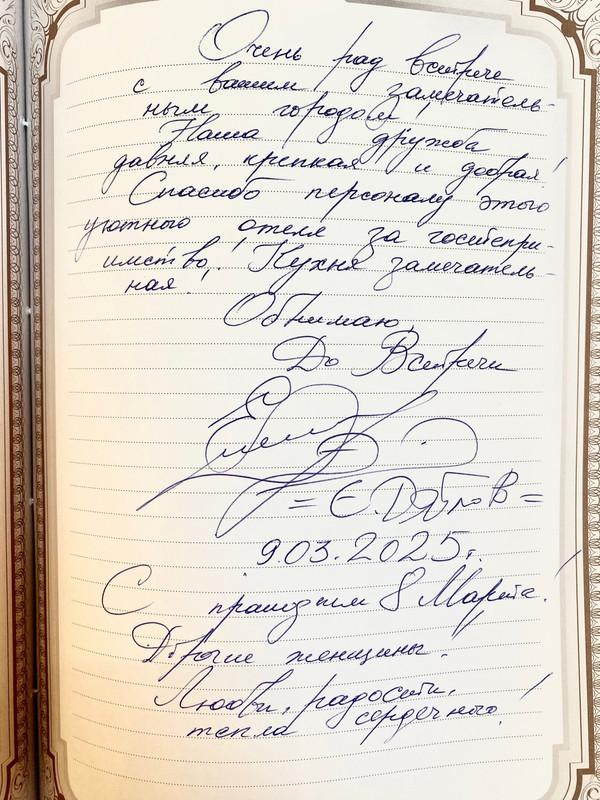 Очень рад встрече
с вашим замечатель-
ным городом!
Наша дружба
давняя, крепкая и добрая!
Спасибо персоналу этого
уютного отеля за гостепри-
имство! Кухня замечатель-
ная!
Обнимаю,
До Встречи
= Е. Дятлов =
9.03.2025г.
С праздником 8 Марта!
Дорогие женщины!
Любви, радости,
тепла сердечного!